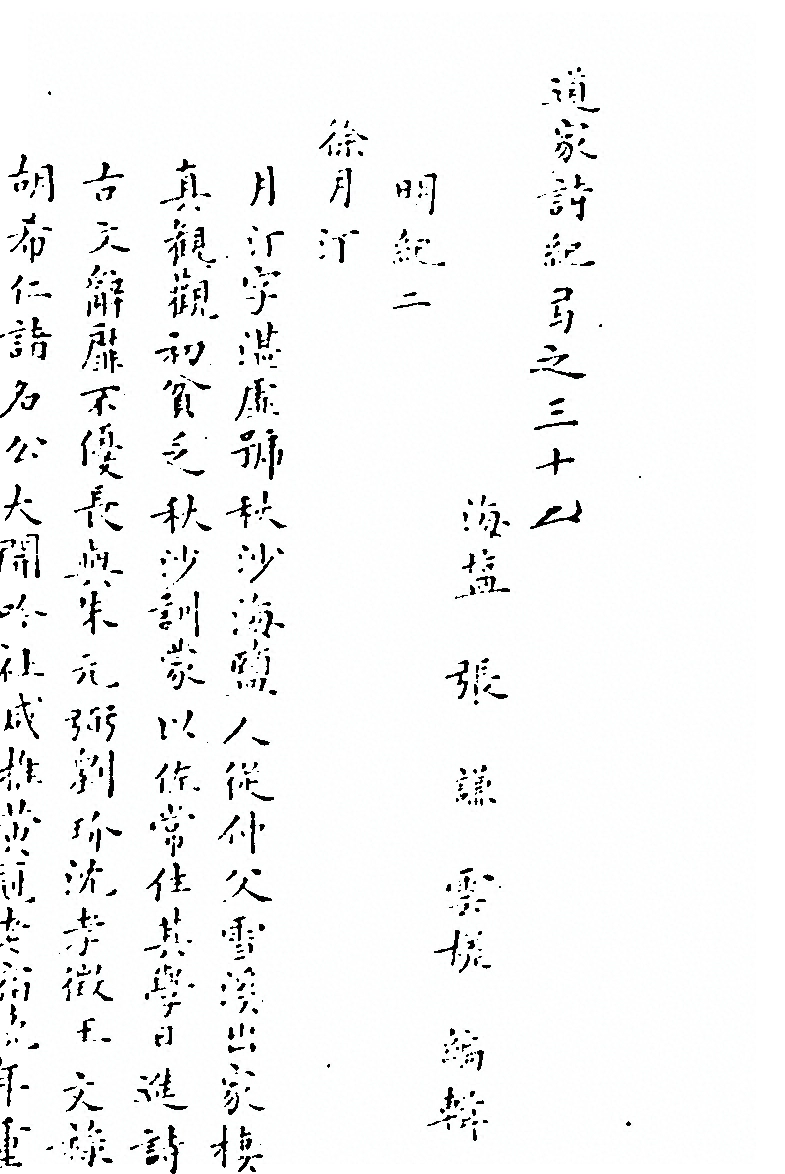 道家詩紀弓之三十
海塩 張 謙 雲槎 編輯
明紀二
徐月汀
月汀字湛虛號秋沙海鹽人從仲父雪溪出家棲
真觀觀初貧乏秋沙訓蒙以佐常住其學日進詩
古文辭靡不優長與朱元弼劉玠沈孝徵王文祿
胡希仁諸名公大開吟社咸推黃冠老宿年重